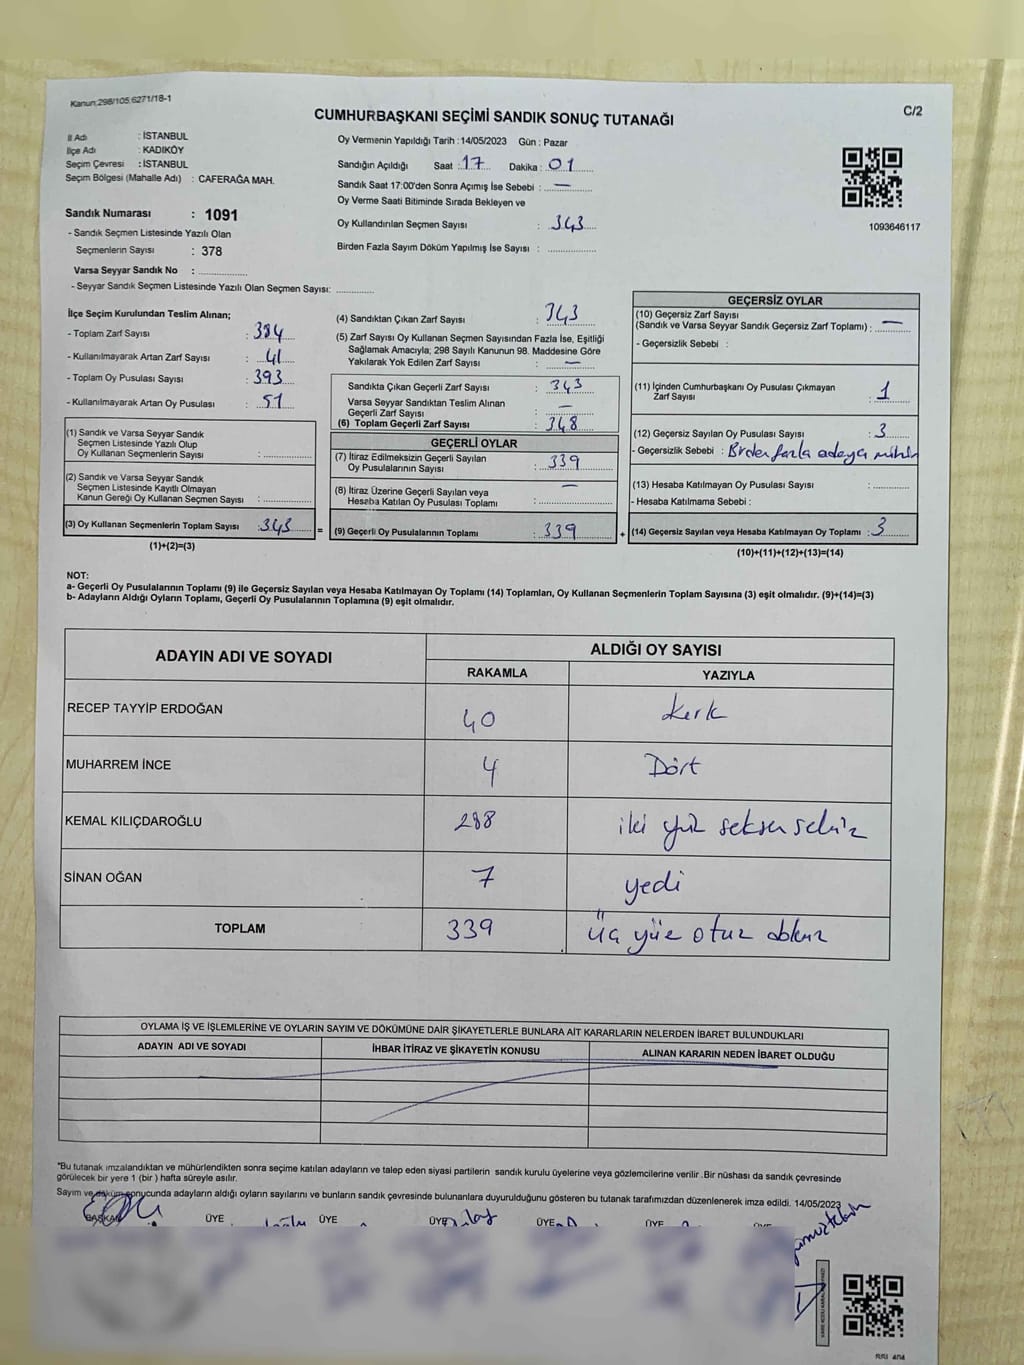 Kanun:298/105.6271/18-1
C/2
CUMHURBAŞKANI SEÇİMİ SANDIK SONUÇ TUTANAĞI
İl Adı : İSTANBUL
İlçe Adı : KADIKÖY
Seçim Çevresi : İSTANBUL
Seçim Bölgesi (Mahalle Adı) : CAFERAĞA MAH.
Sandık Numarası : 1091
- Sandık Seçmen Listesinde Yazılı Olan
Seçmenlerin Sayısı : 378
Varsa Seyyar Sandık No : ..............
- Seyyar Sandık Seçmen Listesinde Yazılı Olan Seçmen Sayısı: ............
Oy Vermenin Yapıldığı Tarih :14/05/2023 Gün : Pazar
Sandığın Açıldığı Saat : 17 Dakika : 01
Sandık Saat 17:00'den Sonra Açımış İse Sebebi : —
Oy Verme Saati Bitiminde Sırada Bekleyen ve
Oy Kullandırılan Seçmen Sayısı : 343
Birden Fazla Sayım Döküm Yapılmış İse Sayısı : ..............
1093646117
İlçe Seçim Kurulundan Teslim Alınan;
- Toplam Zarf Sayısı : 384
- Kullanılmayarak Artan Zarf Sayısı : 41
- Toplam Oy Pusulası Sayısı : 393
- Kullanılmayarak Artan Oy Pusulası : 51
(1) Sandık ve Varsa Seyyar Sandık
Seçmen Listesinde Yazılı Olup
Oy Kullanan Seçmenlerin Sayısı : ..............
(2) Sandık ve Varsa Seyyar Sandık
Seçmen Listesinde Kayıtlı Olmayan
Kanun Gereği Oy Kullanan Seçmen Sayısı : ..............
(3) Oy Kullanan Seçmenlerin Toplam Sayısı : 343 =
(1)+(2)=(3)
(4) Sandıktan Çıkan Zarf Sayısı : 343
(5) Zarf Sayısı Oy Kullanan Seçmen Sayısından Fazla İse, Eşitliği
Sağlamak Amacıyla; 298 Sayılı Kanunun 98. Maddesine Göre
Yakılarak Yok Edilen Zarf Sayısı : —
Sandıkta Çıkan Geçerli Zarf Sayısı : 343
Varsa Seyyar Sandıktan Teslim Alınan
Geçerli Zarf Sayısı : —
(6) Toplam Geçerli Zarf Sayısı : 348
GEÇERLİ OYLAR
(7) İtiraz Edilmeksizin Geçerli Sayılan
Oy Pusulalarının Sayısı : 339
(8) İtiraz Üzerine Geçerli Sayılan veya
Hesaba Katılan Oy Pusulası Toplamı : —
(9) Geçerli Oy Pusulalarının Toplamı : 339 +
GEÇERSİZ OYLAR
(10) Geçersiz Zarf Sayısı
(Sandık ve Varsa Seyyar Sandık Geçersiz Zarf Toplamı) : —
- Geçersizlik Sebebi :
(11) İçinden Cumhurbaşkanı Oy Pusulası Çıkmayan
Zarf Sayısı : 1
(12) Geçersiz Sayılan Oy Pusulası Sayısı : 3
- Geçersizlik Sebebi : Birden fazla adaya mühür
(13) Hesaba Katılmayan Oy Pusulası Sayısı : ..............
- Hesaba Katılmama Sebebi :
(14) Geçersiz Sayılan veya Hesaba Katılmayan Oy Toplamı : 3
(10)+(11)+(12)+(13)=(14)
NOT:
a- Geçerli Oy Pusulalarının Toplamı (9) ile Geçersiz Sayılan veya Hesaba Katılmayan Oy Toplamı (14) Toplamları, Oy Kullanan Seçmenlerin Toplam Sayısına (3) eşit olmalıdır. (9)+(14)=(3)
b- Adayların Aldığı Oyların Toplamı, Geçerli Oy Pusulalarının Toplamına (9) eşit olmalıdır.
ADAYIN ADI VE SOYADI
ALDIĞI OY SAYISI
RAKAMLA YAZIYLA
RECEP TAYYİP ERDOĞAN 40 kırk
MUHARREM İNCE 4 Dört
KEMAL KILIÇDAROĞLU 288 iki yüz seksen sekiz
SİNAN OĞAN 7 yedi
TOPLAM 339 üç yüz otuz dokuz
OYLAMA İŞ VE İŞLEMLERİNE VE OYLARIN SAYIM VE DÖKÜMÜNE DAİR ŞİKAYETLERLE BUNLARA AİT KARARLARIN NELERDEN İBARET BULUNDUKLARI
ADAYIN ADI VE SOYADI İHBAR İTİRAZ VE ŞİKAYETİN KONUSU ALINAN KARARIN NEDEN İBARET OLDUĞU
"Bu tutanak imzalandıktan ve mühürlendikten sonra seçime katılan adayların ve talep eden siyasi partilerin sandık kurulu üyelerine veya gözlemcilerine verilir .Bir nüshası da sandık çevresinde
görülecek bir yere 1 (bir ) hafta süreyle asılır.
Sayım ve döküm sonucunda adayların aldığı oyların sayılarını ve bunların sandık çevresinde bulunanlara duyurulduğunu gösteren bu tutanak tarafımızdan düzenlenerek imza edildi. 14/05/2023
BAŞKAN ÜYE ÜYE ÜYE ÜYE ÜYE ÜYE